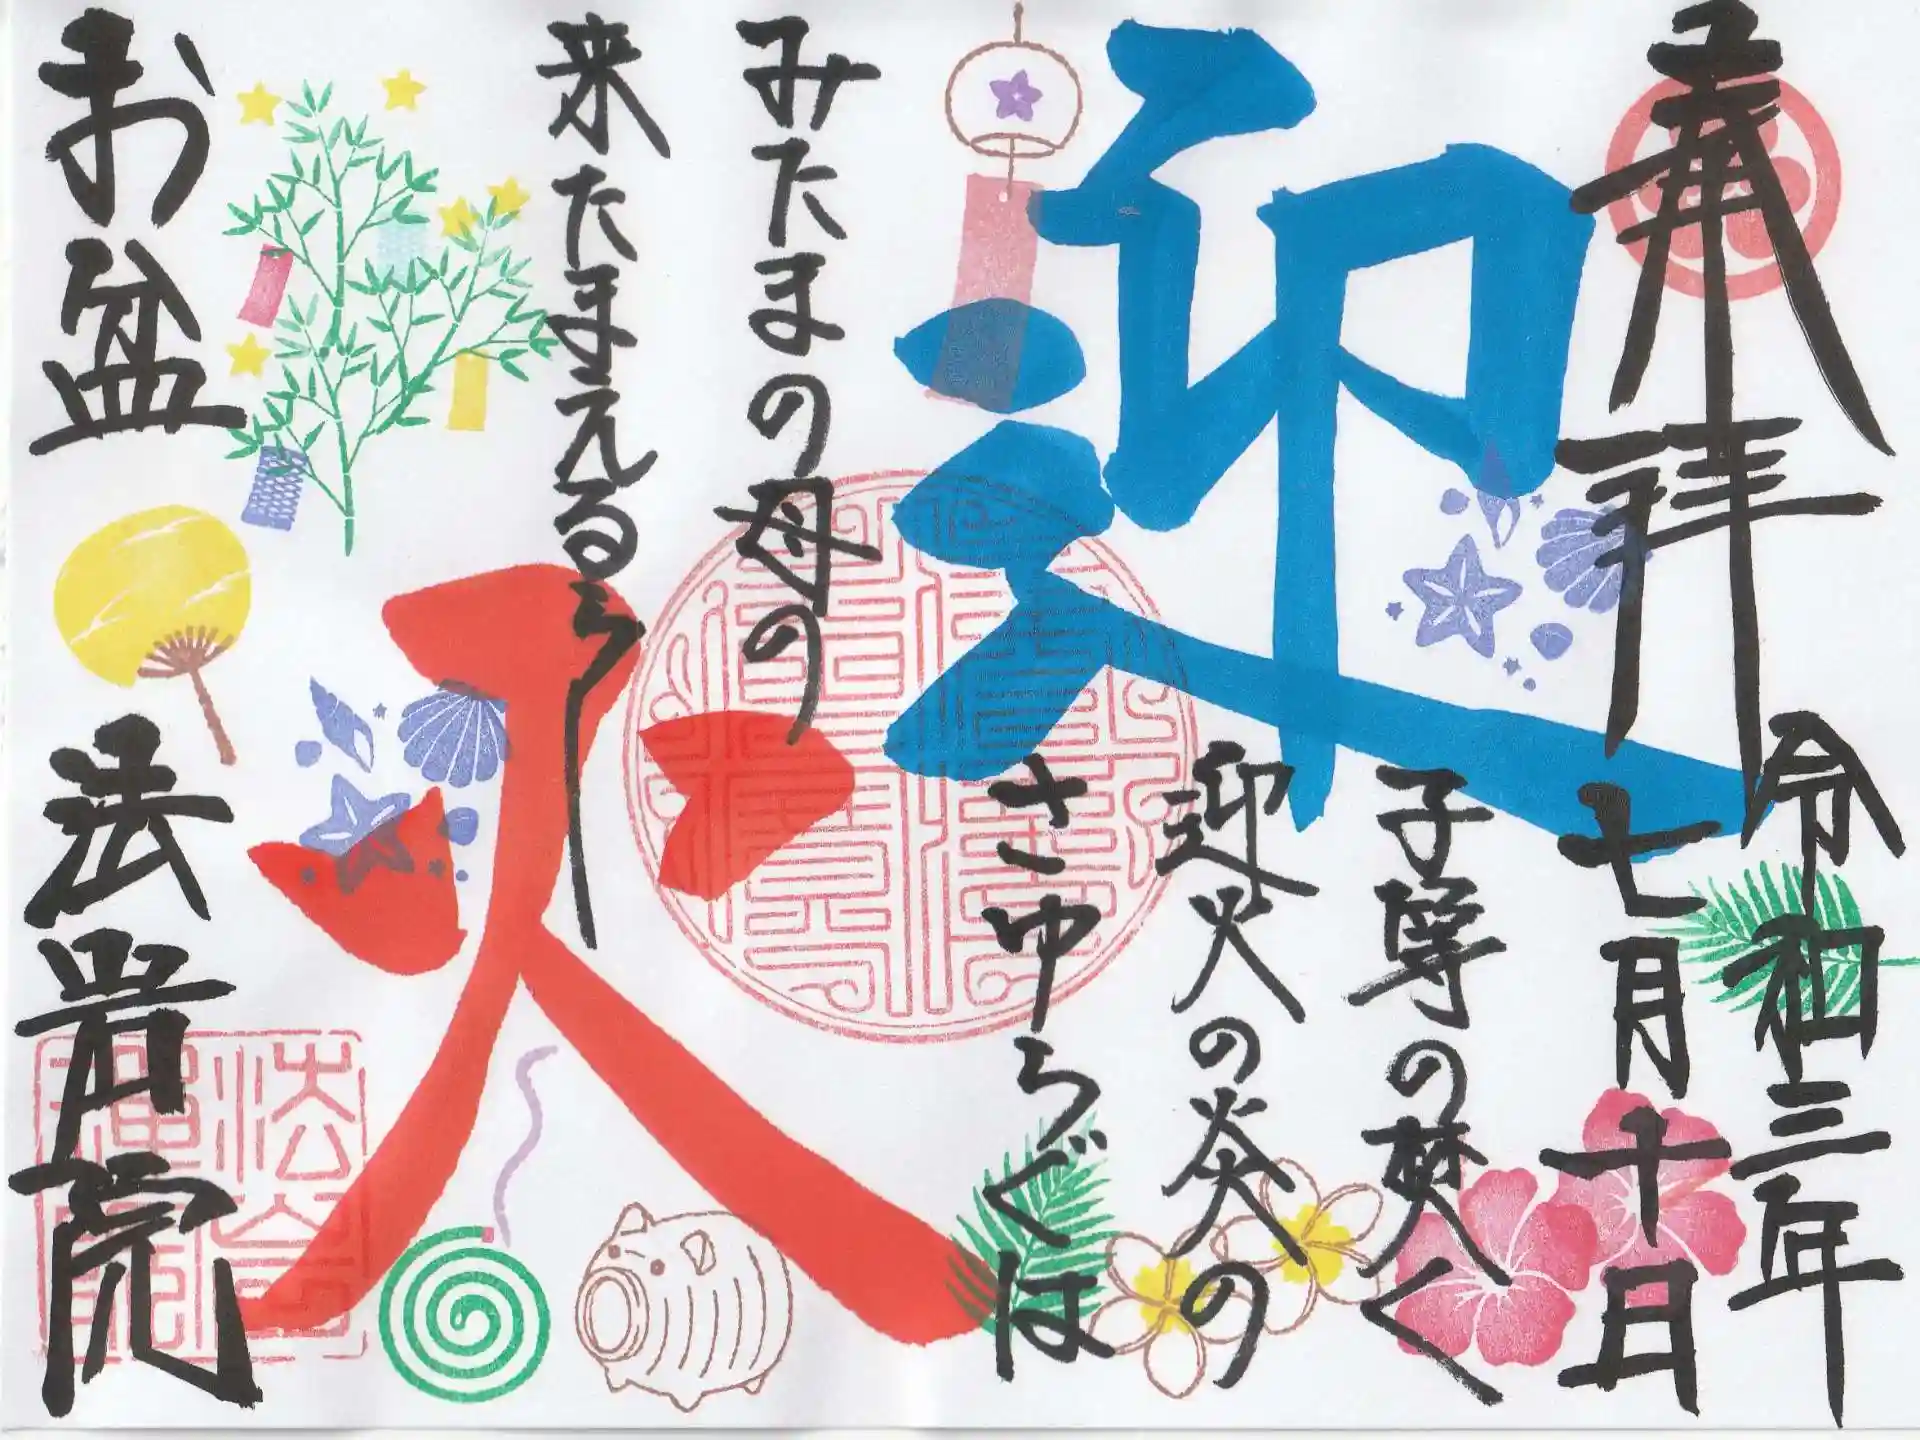 奉拝
令和三年
七月十日
迎
火
子等の焚く
迎火の炎の
さゆらぐは
みたまの母の
来たまえるらし
お盆
法岩院